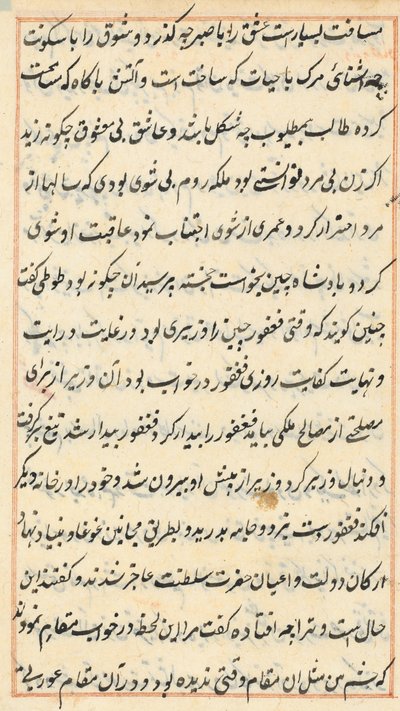 مسافت بسیار است عشق را با صبر چه گذر و شوق را با سکونت
چه آشنائی مرگ با حیات که ساخت است و آتش با کاه که
کرده طالب بمطلوب چه شکل باشد و عاشق بی معشوق چگونه زید
اگر زن بی مرد توانستی بود ملکه روم بی شوی بودی که سالها از
مرد احتراز کرد و عمری از شوی اجتناب نمود عاقبت او شوی
کرد و بادشاه چین بخواست خجسته پرسید آن چگونه بود طوطی گفت
چنین گویند که وقتی فغفور چین را وزیری بود در غایت درایت
و نهایت کفایت روزی فغفور در خواب بود آن وزیر از برای
مصلحتی از مصالح ملکی بیامد فغفور را بیدار کرد فغفور بیدار شد تیغ برگرفت
و دنبال وزیر کرد وزیر از پیش او بیرون شد و خود را در خانه دیگر
افکند فغفور دست بزد و جامه بدرید و بطریق مجانین غوغا بنیاد نهاد
ارکان دولت و اعیان حضرت سلطنت عاجز شدند و گفتند این
حال است و ترا چه افتاده گفت مرا این لحظه در خواب مقام نمودند
که چشم من مثل آن مقام وقتی ندیده بود و در آن مقام عورتی